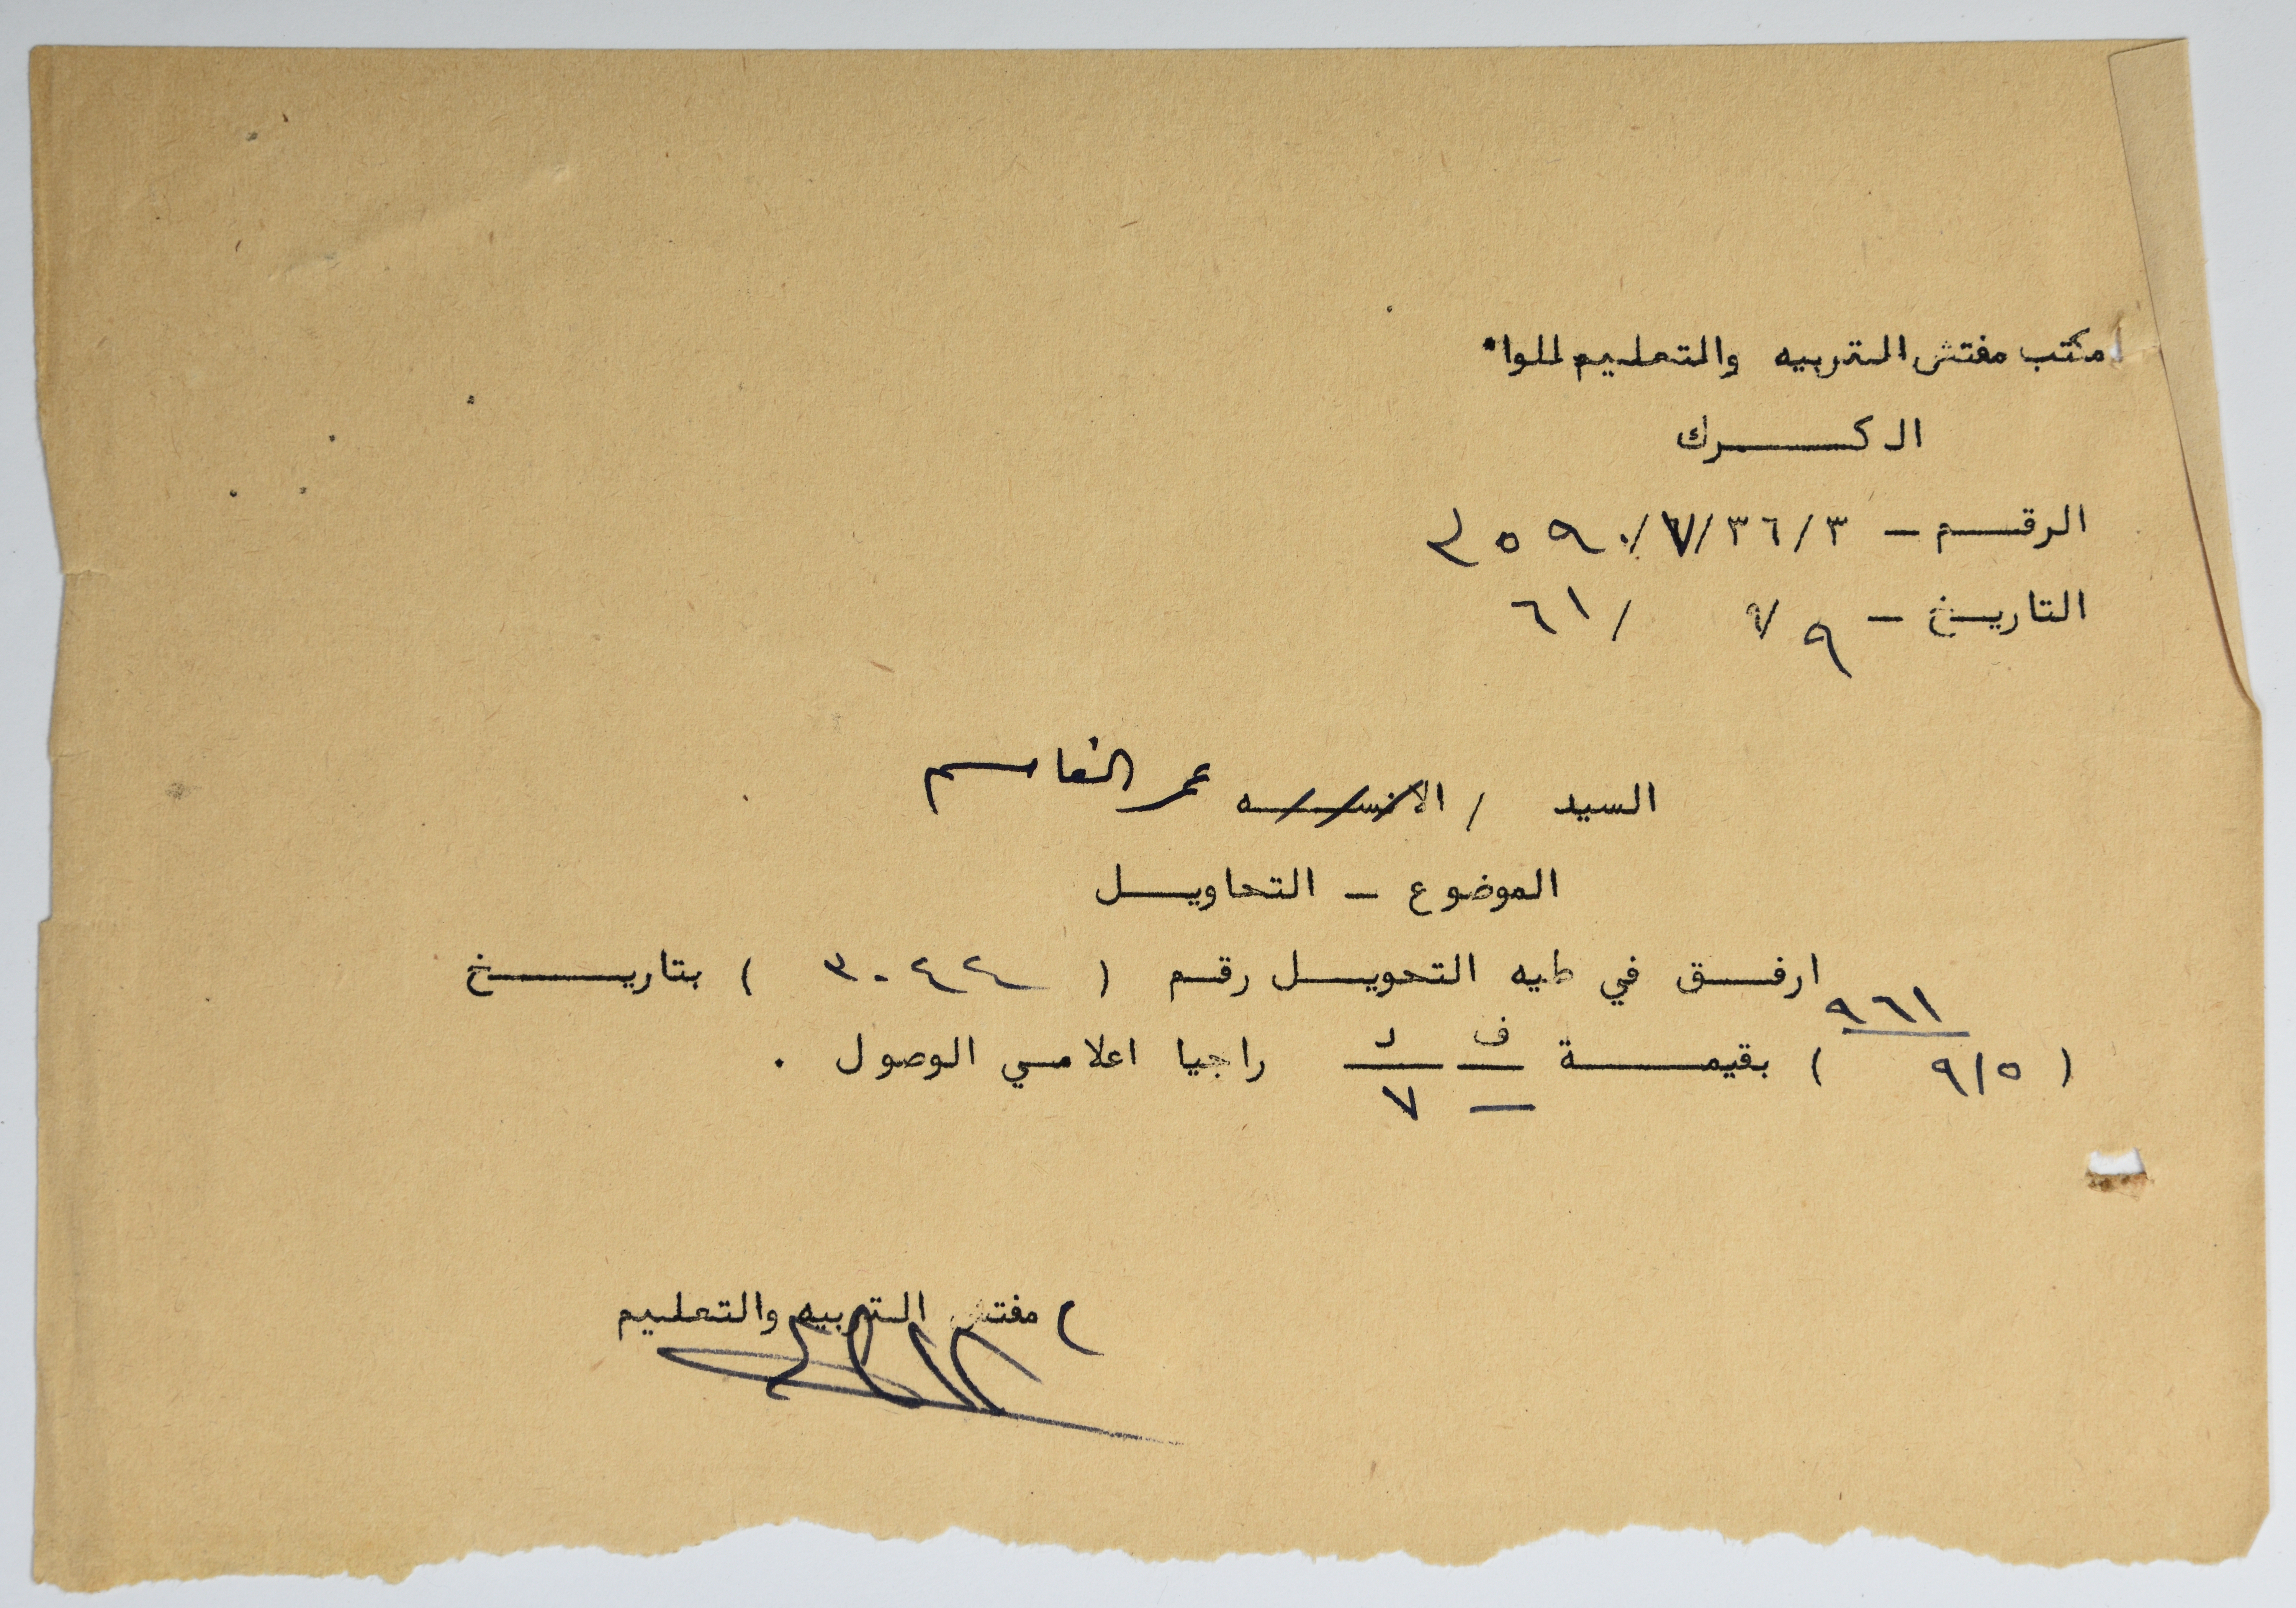 مكتب مفتش التربيه والتعليم للواء
الكـــرك
الرقــم – ٣٦/٣/٧/٢٥٩٠
التاريـخ – ٩ ٧ / ٦١
السيد / الانســـه عمر القاسم
الموضوع – التحاويــل
ارفــق في طيه التحويــل رقـم ( ٣٠٤٤ ) بتاريـــخ
٩٦١
( ٩/٥ ) بقيمـــة ف د راجيا اعلامـي الوصول .
— ٧
م مفتش التربيه والتعليم